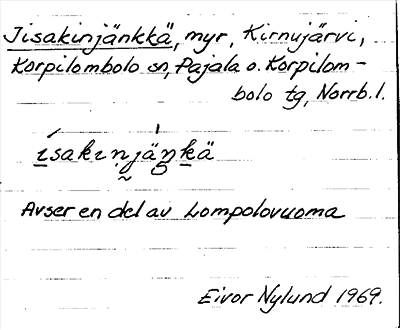 Jisakinjänkkä, myr, Kirnujärvi,
Korpilombolo sn, Pajala o. Korpilom-
bolo tg, Norrb. l.
ísakıṇjä́ŋkä
Avser en del av Lompolovuoma
Eivor Nylund 1969.